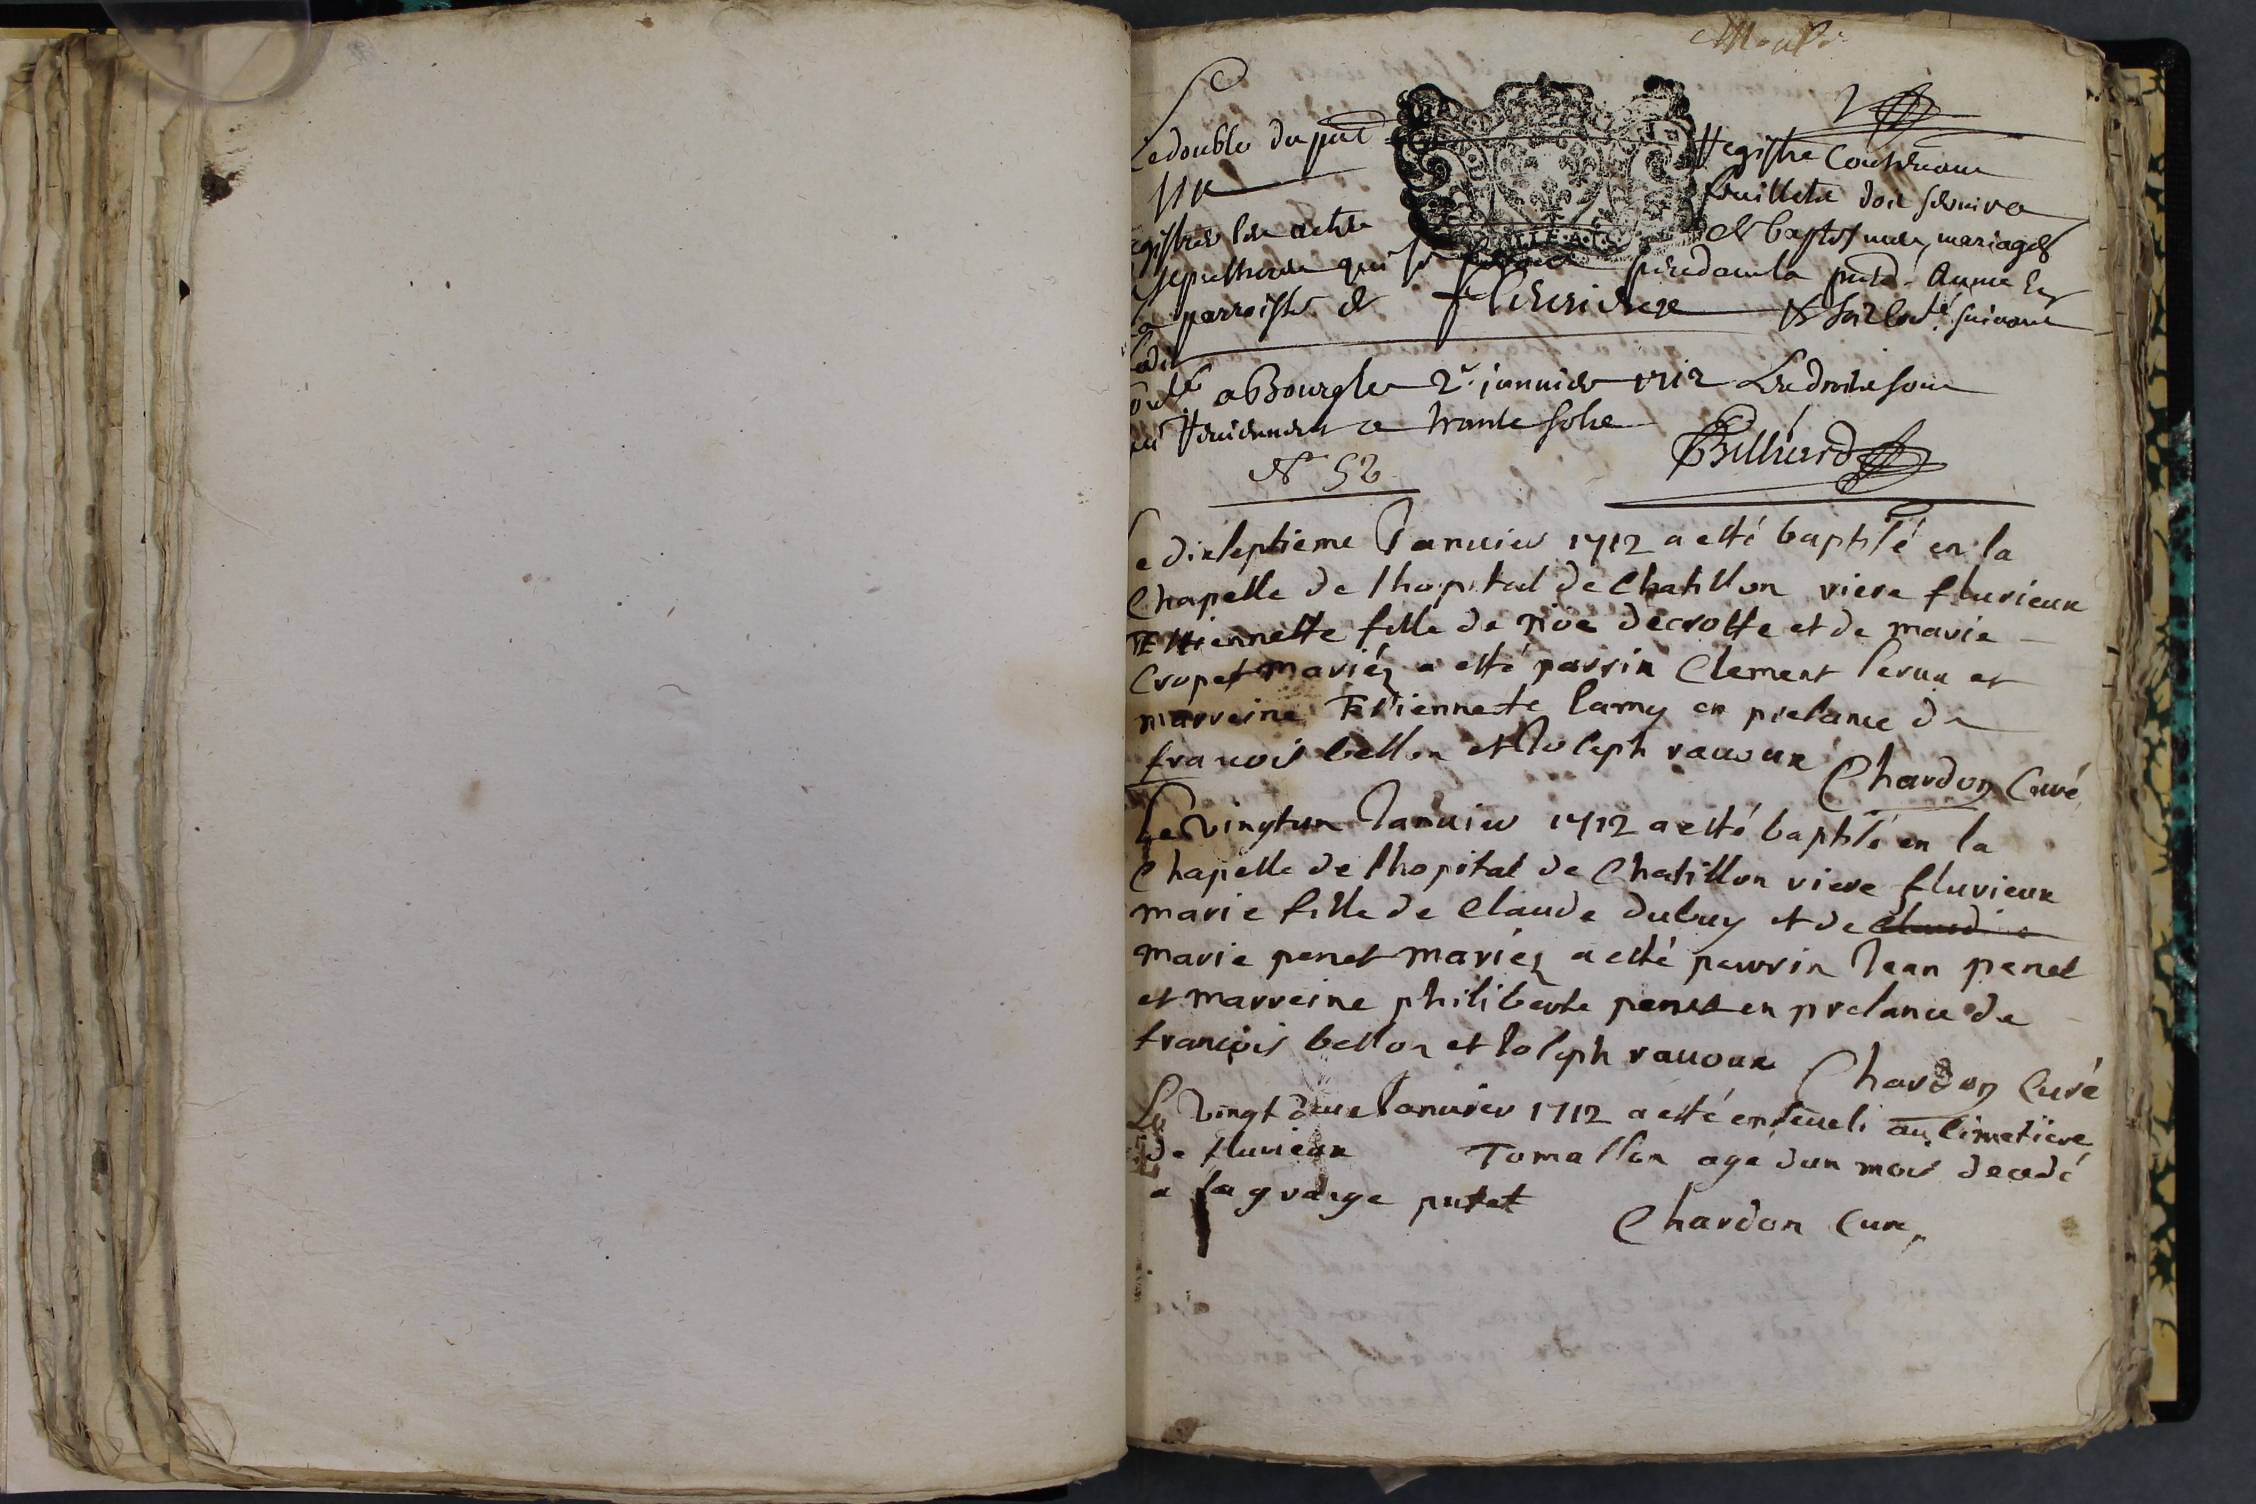 Le double du pnt Registre Contenant
six feuillets doit servir a
egistrer les actes de baptesmes, mariages
sepultures qui se feront pendant la pnte Année En
la parroisse de fleurieux Et soit coté suivant
ledit
a Bourg le 2e janvier 1712 Les droits sont
Reviennent a trante sols
N° 52 Billiard
Le dixseptieme Januier 1712 a esté baptisé en la
Chapelle de lhopital de Chatillon viere fluvieux
Ettiennette fille de noé decrotte et de marie
Cropet mariéz a esté parrin Clement et
marreine Estiennette lamy en presance de
francois bellon et Joseph rauoux Chardon Curé
Le vingtun Januier 1712 a esté baptisé en la
Chapelle de lhopital de Chatillon viere fluvieux
marie fille de Claude dubuy et de Claudine
marie penet mariéz a esté parrin Jean penet
et marreine philiberte penet en presance de
françois bellon et Joseph rauoux Chardon Curé
Le Vingt deux Januier 1712 a esté enseueli au Cimetiere
de fluvieux Tomasson agé dun mois decedé
a la grange putet Chardon Cure